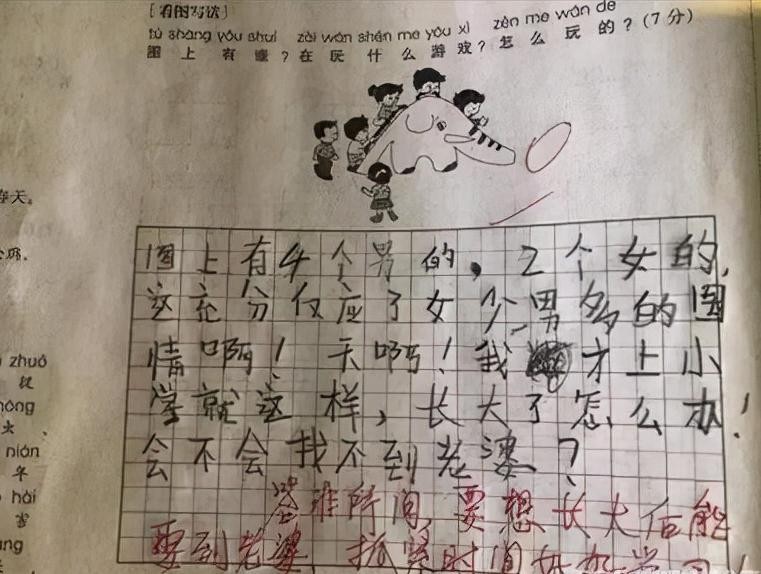 [看图写话]
tú shàng yǒu shuí zài wán shén me yóu xì zěn me wán de
图上有谁？在玩什么游戏？怎么玩的？(7分)
图上有4个男的，2个女的，
这充分仅应了女少男多的国
情啊！天啊！我才上小
学就这样，长大了怎么办！
会不会找不到老婆？
时间，要想长大后能
娶到老婆，抓紧时间好好学习！
春天。
zhuō
nián
年
hài
害